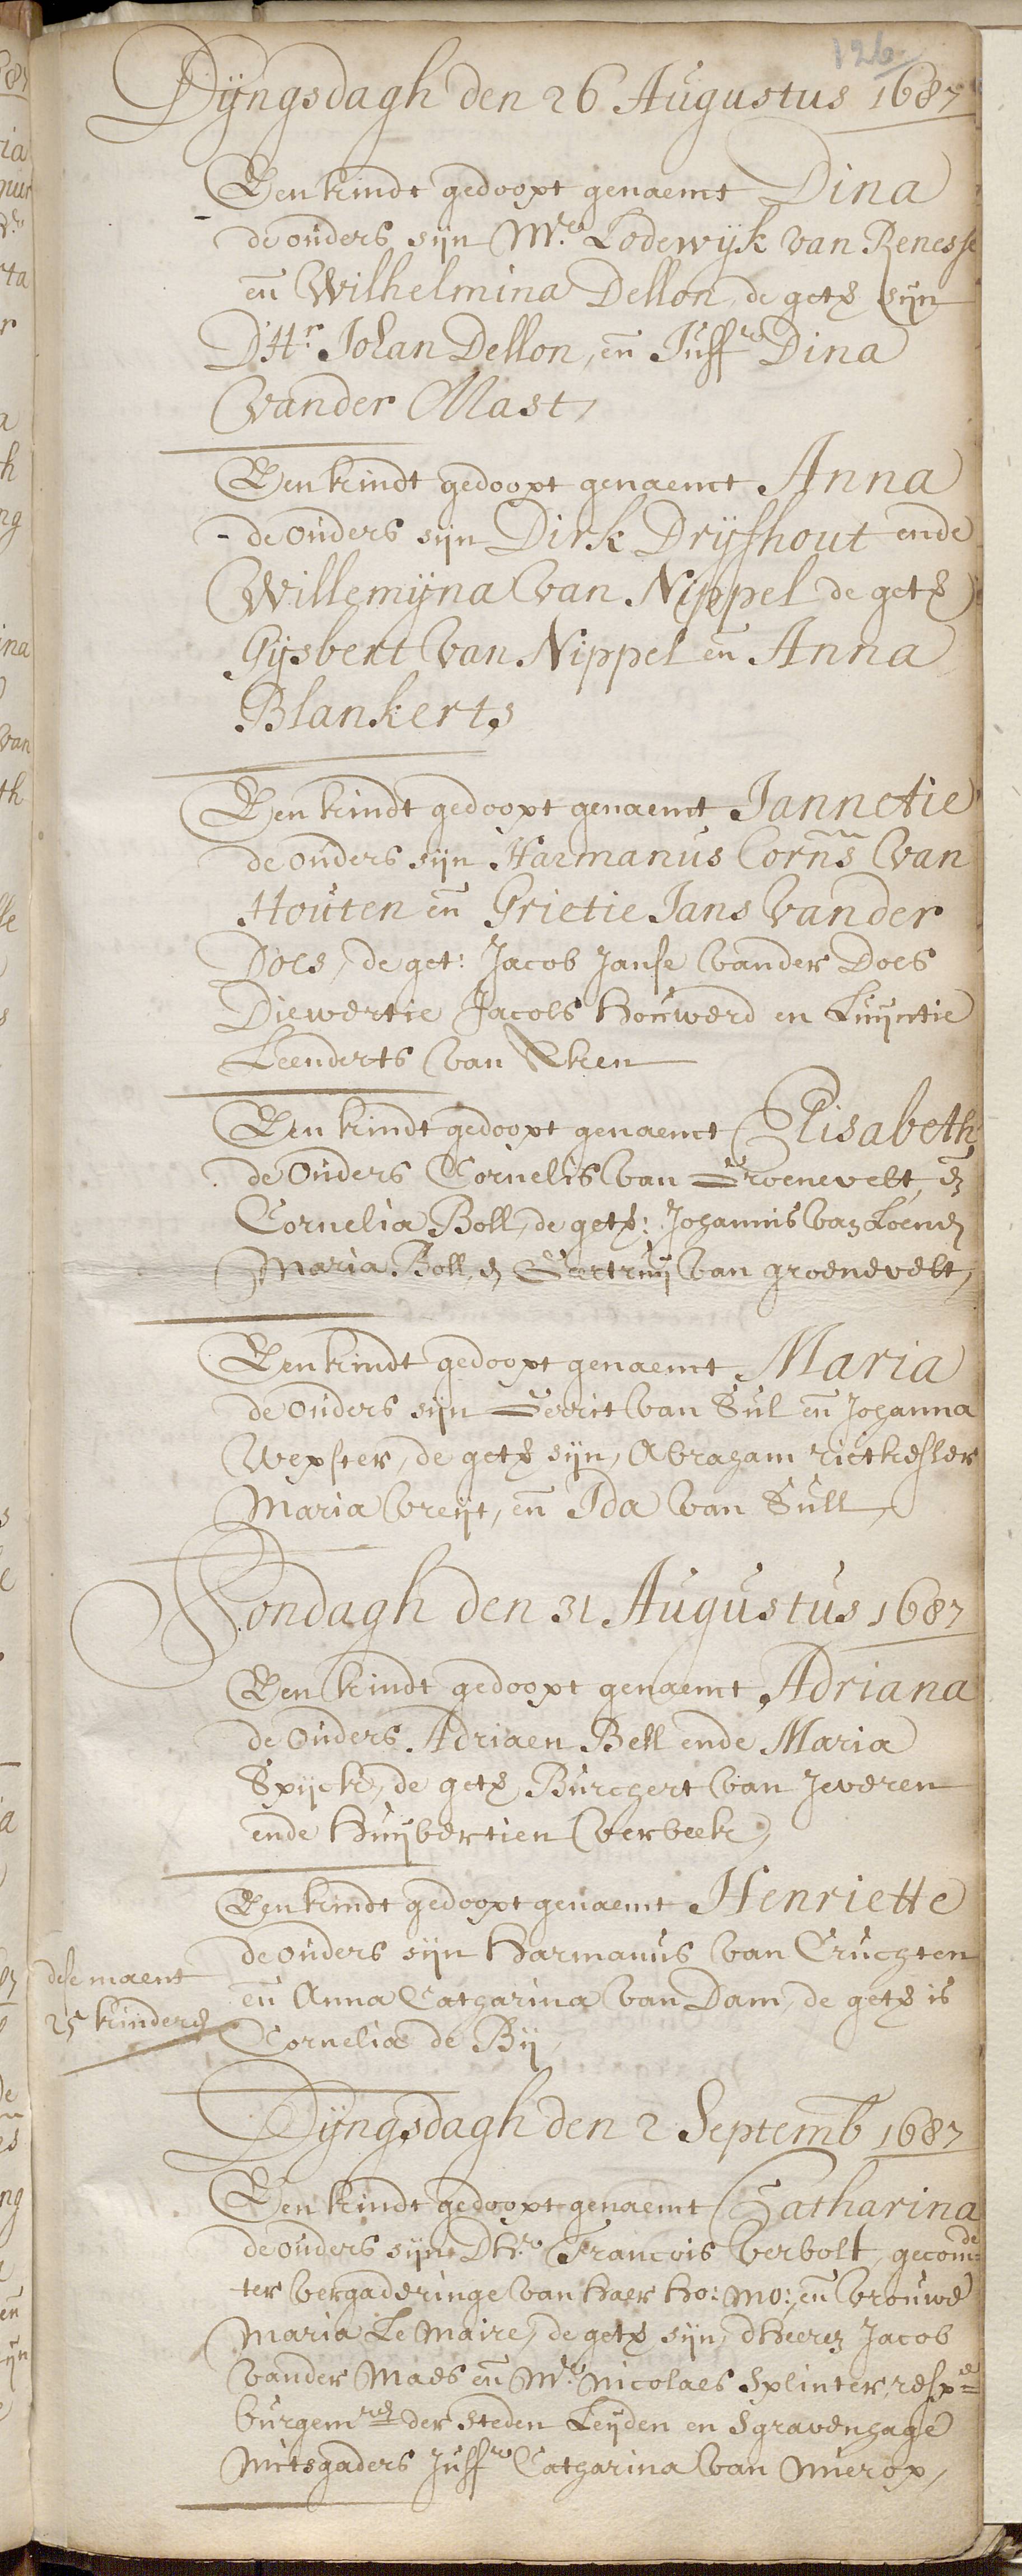 126
Dijngsdagh den 26 Augustus 1687
Een kindt gedoopt genaemt Dina
de ouders sijn Mr. Lodewijk van Renesse
en Wilhelmina Dellon, de get: sijn
D'Hr. Johan Dellon, en Juffro Dina
vander Mast,
Een kindt gedoopt genaemt Anna
- de ouders sijn Dirk Drijfhout ende
Willemijna van Nippel de get:
Gijsbert van Nippel en Anna
Blankerts
Een kindt gedoopt genaemt Jannetie
de ouders sijn Harmanus Corns van
Houten en Grietie Jans vander
Does, de get: Jacob Janse vander Does
Diewertie Jacobs Houwerd en Luijntie
Leenderts van Eken
Een kindt gedoopt genaemt Elisabeth
de Ouders Cornelis van Groenevelt, en
Cornelia Boll, de get: Johannis van Loenen
Maria Boll, en Geertruij van groenevelt,
Een kindt gedoopt genaemt Maria
de ouders sijn Gerrit van Sul en Johanna
Wepster, de get: sijn, Abraham rietkesler
Maria Vreijt, en Ida van Sull,
Sondagh den 31 Augustus 1687
Een kindt gedoopt genaemt Adriana
de Ouders Adriaen Bell ende Maria
Spijck, de get: Burchert van Jeveren
ende Huijbertien verbeek,
Een kindt gedoopt genaemt Henriette
de ouders sijn Harmanus van Cruchten
en Anna Catharina van Dam, de get: is
Cornelia de Bij,
dese maent
25 kinderen
Dijngsdagh den 2 Septemb 1687
Een kindt gedoopt genaemt Catharina
de ouders sijn Dhr. Francois verbolt, gecomde
ter vergaderinge van haer Ho: Mo:, en vrouwe
Maria Le Maire, de get: sijn, dHeeren Jacob
vander Maes en Mr. Nicolaes Splinter, respe
burgemren der steden Leijden en Sgravenhage
mitsgaders Juffro Catharina van Mierop,